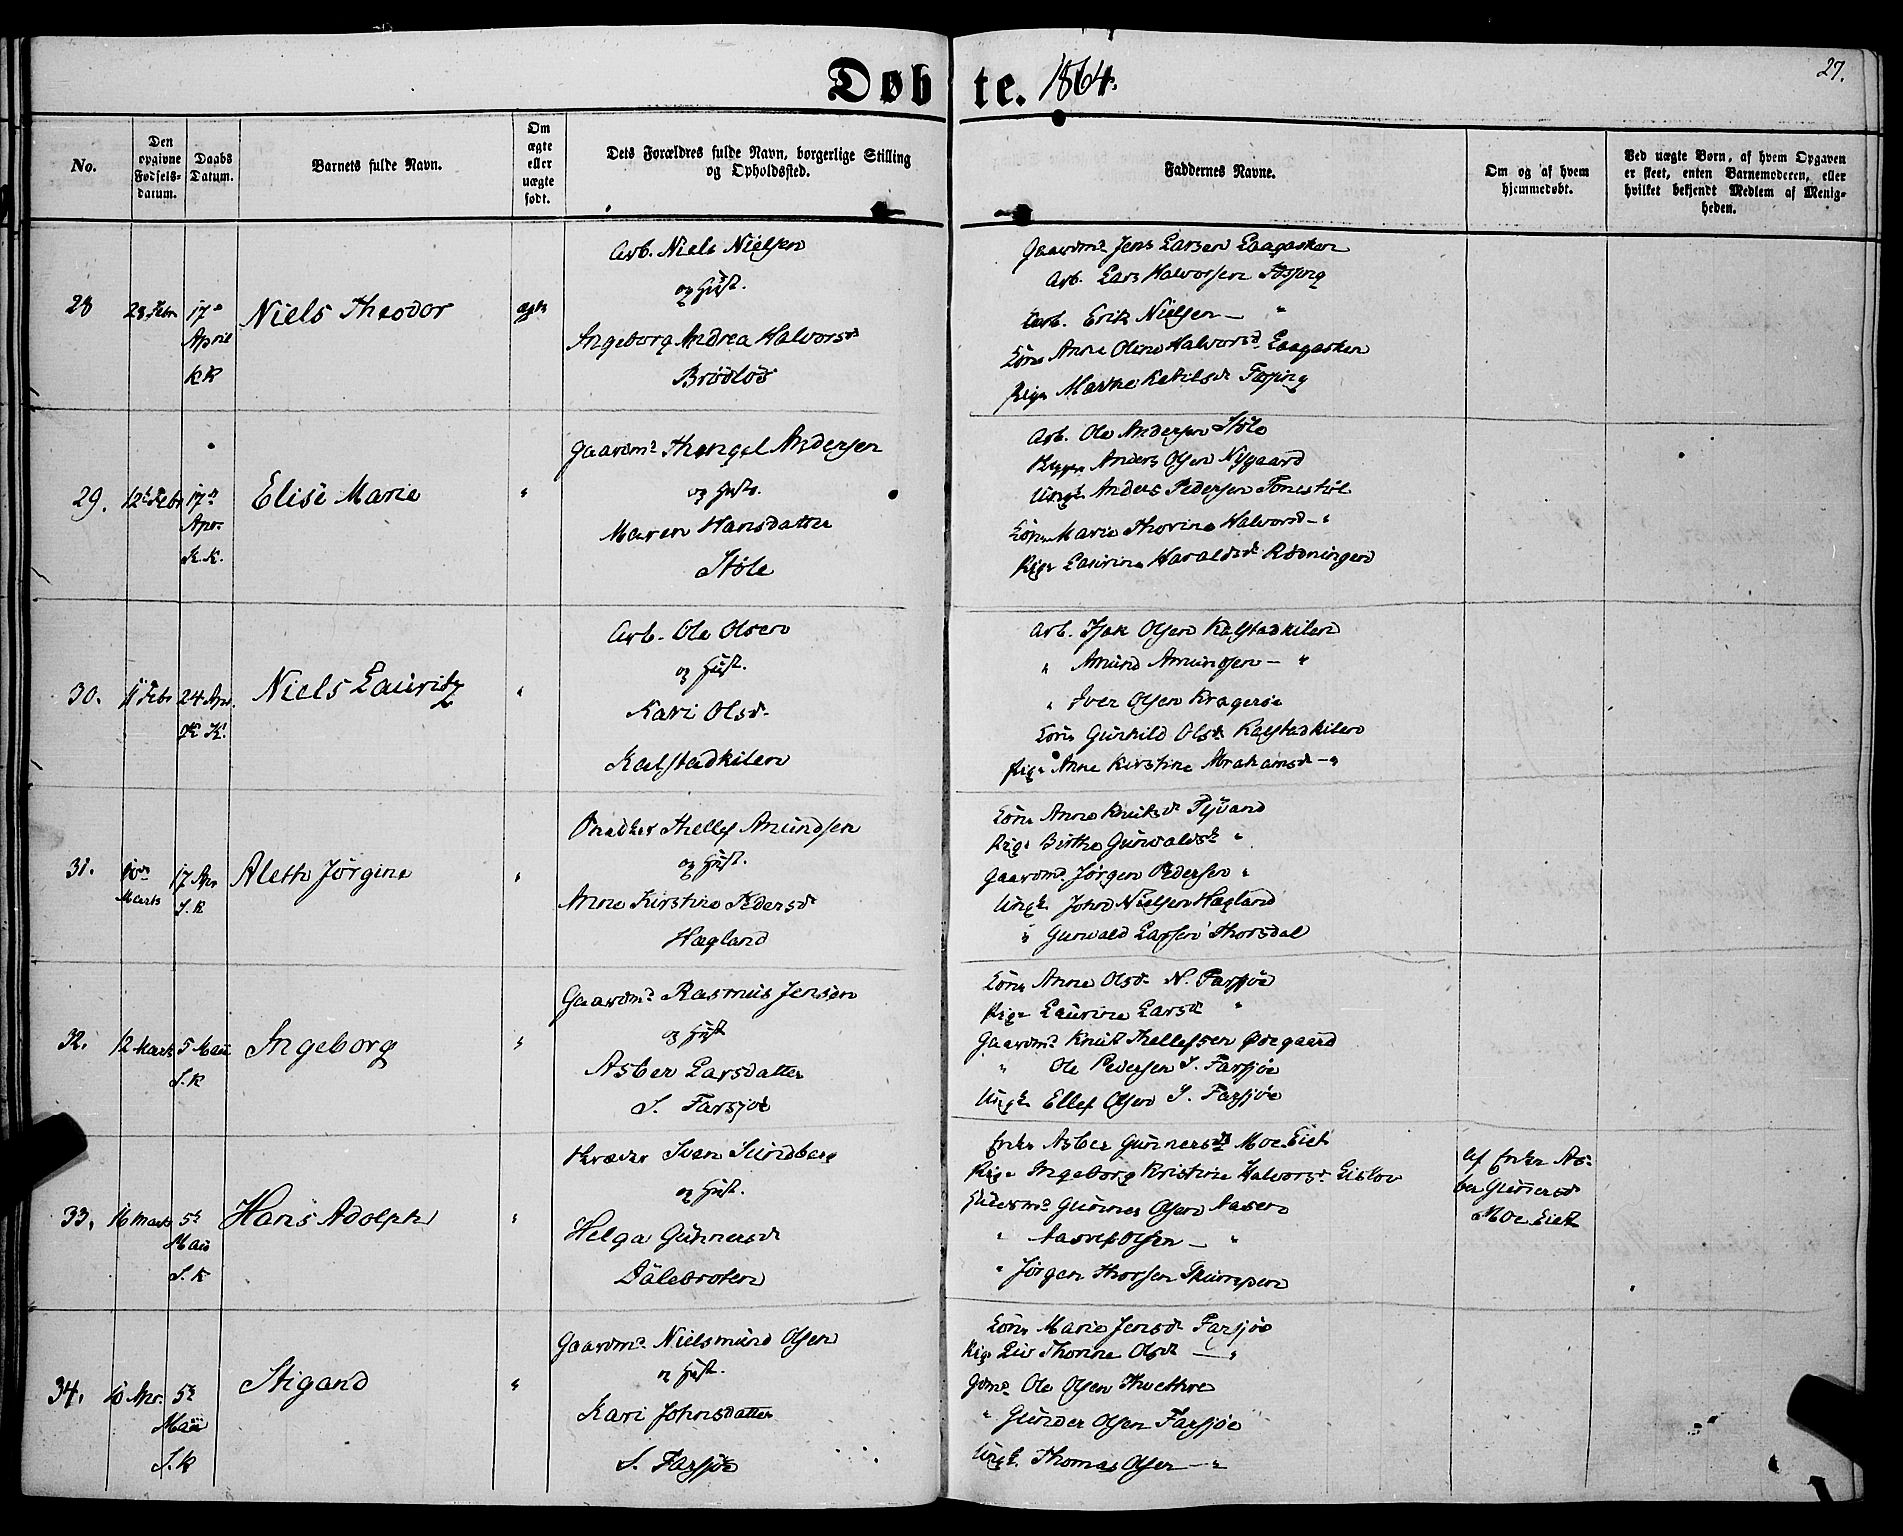 Døbte. 1864.
27.
No.
Den opgivne Fødsels-datum.
Daabs Datum.
Barnets fulde Navn.
Om ægte eller uægte født.
Dets Forældres fulde Navn, borgerlige Stilling og Opholdssted.
Faddernes Navne.
Om og af hvem hjemmedøbt.
Ved uægte Børn, af hvem Opgaven er skeet, enten Barnemoderen, eller hvilket bekjendt Medlem af Menigheden.
28
28 Febr
17de April
KK
Niels Theodor
ægte
Arb. Niels Nielsen
og Hust.
Ingeborg Andrea Halvorsd
Brødløs
Gaardmd Jens Larsen Laagasken
Arb. Lars Halvorsen Fossing
Arb. Erik Nielsen — "
Kone Anne Oline Halvorsd Laagasken
Pige Marthe Ketilsd Fossing
29.
12te Febr
17de
Apr.
K.K.
Elise Marie
"
Gaardmd Thengel Andersen
og Hust.
Maren Hansdatter
Støle
Arb. Ole Andersen Støle
Anders Olsen Nygaard
Ungk Anders Pedersen
Kone Marie Thorine Halvorsd — "
Pige Laurine Haraldsd Rødningen
30.
11 Febr
24 Apr.
K K.
Niels Lauritz
"
Arb. Ole Olsen
og Hust.
Kari Olsd.
Kalstadkilen
Arb. Isak Olsen Kalstadkilen
" Amund Amundsen — "
" Iver Olsen Kragerøe
Kone Gunhild Olsd Kalstadkilen
Pige Anne Kirstine Abrahamsd — "
31.
10de Marts
17 Apr
S.K
Aleth Jørgine
"
Thellef Amundsen
og Hust.
Anne Kirstine Pedersd
Hægland
Kone Anne Knutsd
Pige Birthe Gunvaldsd "
Gaardmd. Jørgen Pedersen "
Ungk John Nielsen Hægland
" Gunvald Larsen Thorsdal
32.
12 Marts
5 Mai
S.K
Ingeborg
"
Gaardmd Rasmus Jensen
og Hust
Asber Larsdatter
S. Farsjøe
Kone Anne Olsd. N. Farsjøe
Pige Laurine Larsd "
Gaardmd Knut Thellefsen Øregaard
" Ole Pedersen S. Farsjøe
Ungk Ellef Olsen S. Farsjøe
33.
16 Marts
5te
Mai
S.K
Hans Adolph
"
Skræder Sven Sundberg
og Hust.
Helga Gunnersd
Dalebroten
Enke Asber Gunnersd Moe Eiet
Pige Ingeborg Kristine Halvorsd
Gunner Olsen Aasen
" Olsen — "
" Jørgen Thorsen
af Enke As-
ber Gunnersd
Moe Eiet
34.
10 Apr.
5te
Mai
S.K
Stigand
"
Gaardmd Nielsmund Olsen
og Hust.
Kari Johnsdatter
S. Farsjøe
Kone Marie Jensd Farsjøe
Pige Liv Thorine Olsd — "
Gdmd Ole Olsen Tvethre
" Gunder Olsen Farsjøe
Ungk. Thomas Olsen — "